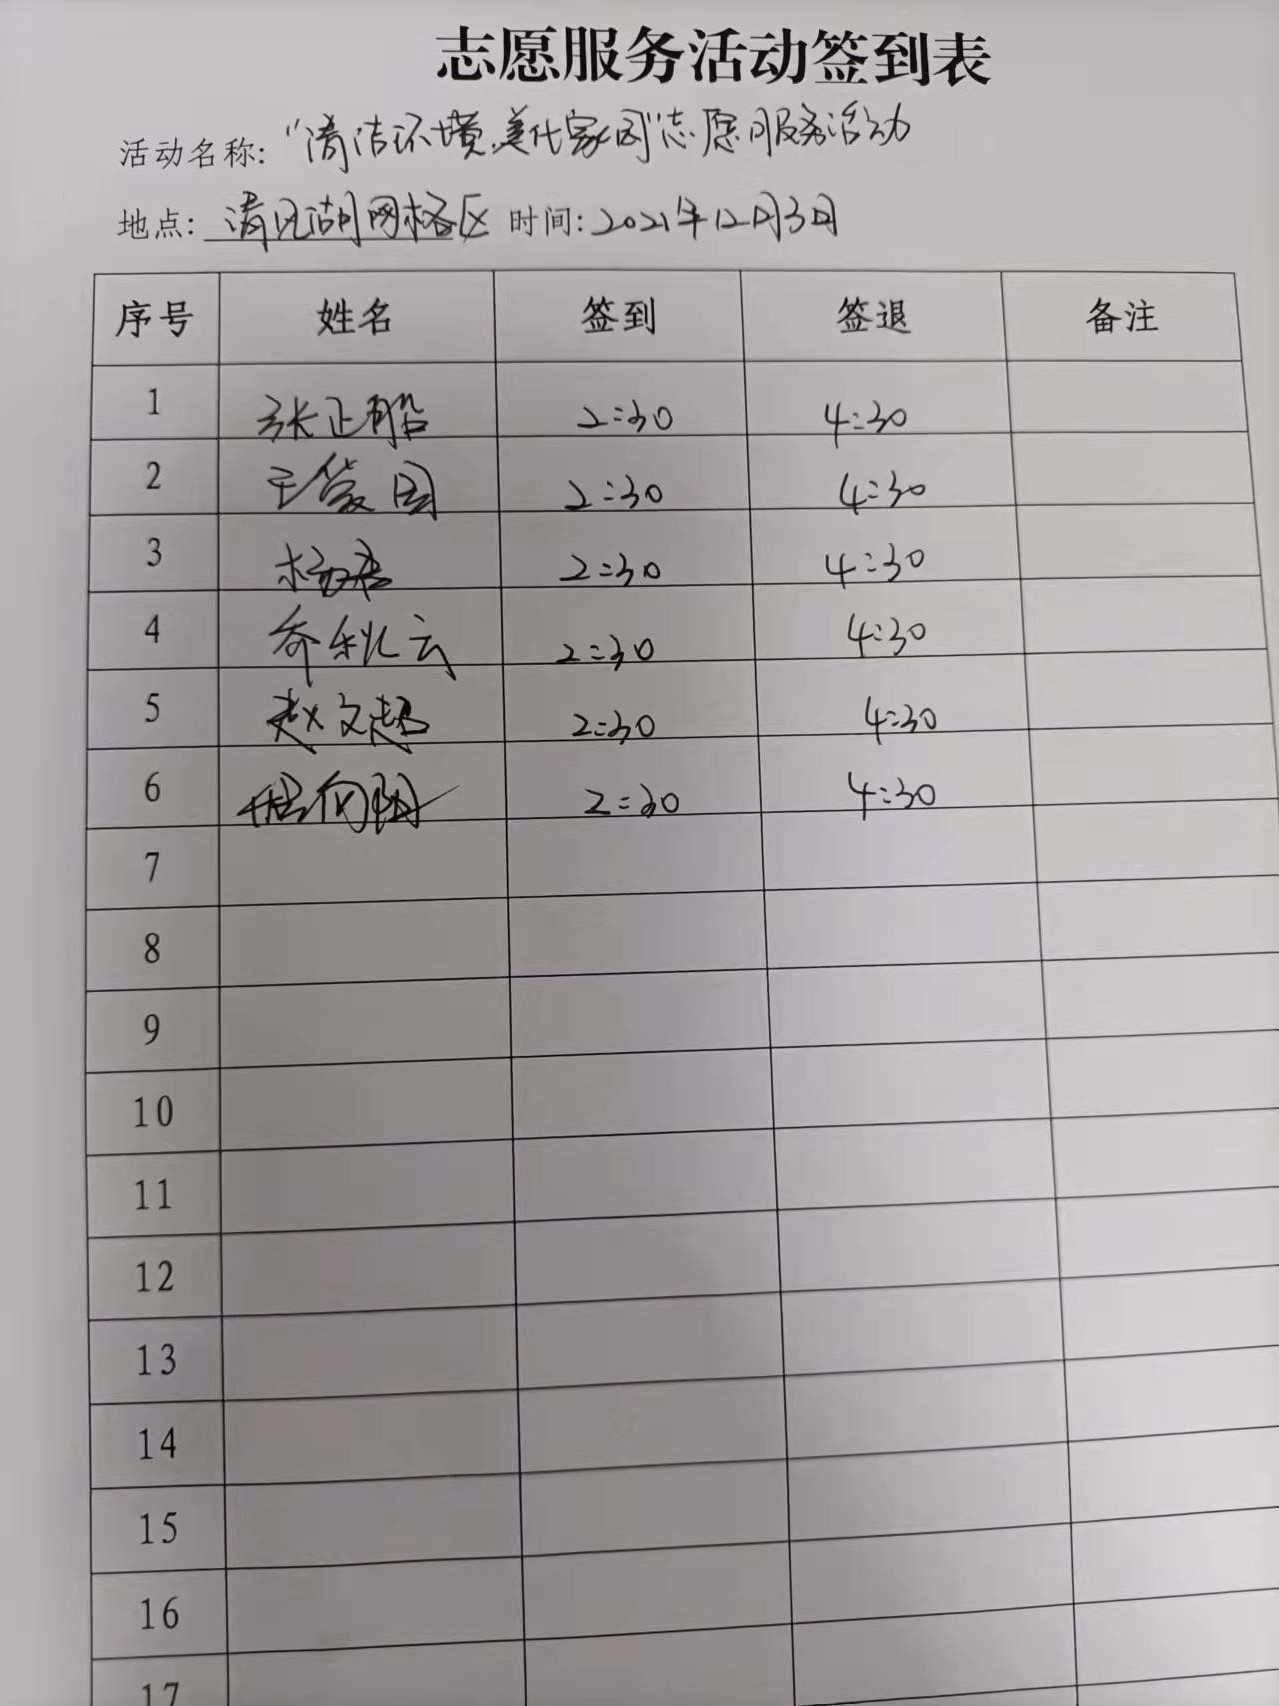 志愿服务活动签到表
活动名称:“清洁环境,美化家园”志愿服务活动
地点:清风湖网格区 时间:2021年12月3日
序号 姓名 签到 签退 备注
1 张正船 2:30 4:30
2 王爱国 2:30 4:30
3 杨君 2:30 4:30
4 乔秋云 2:30 4:30
5 赵文超 2:30 4:30
6 向阳 2:30 4:30
7
8
9
10
11
12
13
14
15
16
17